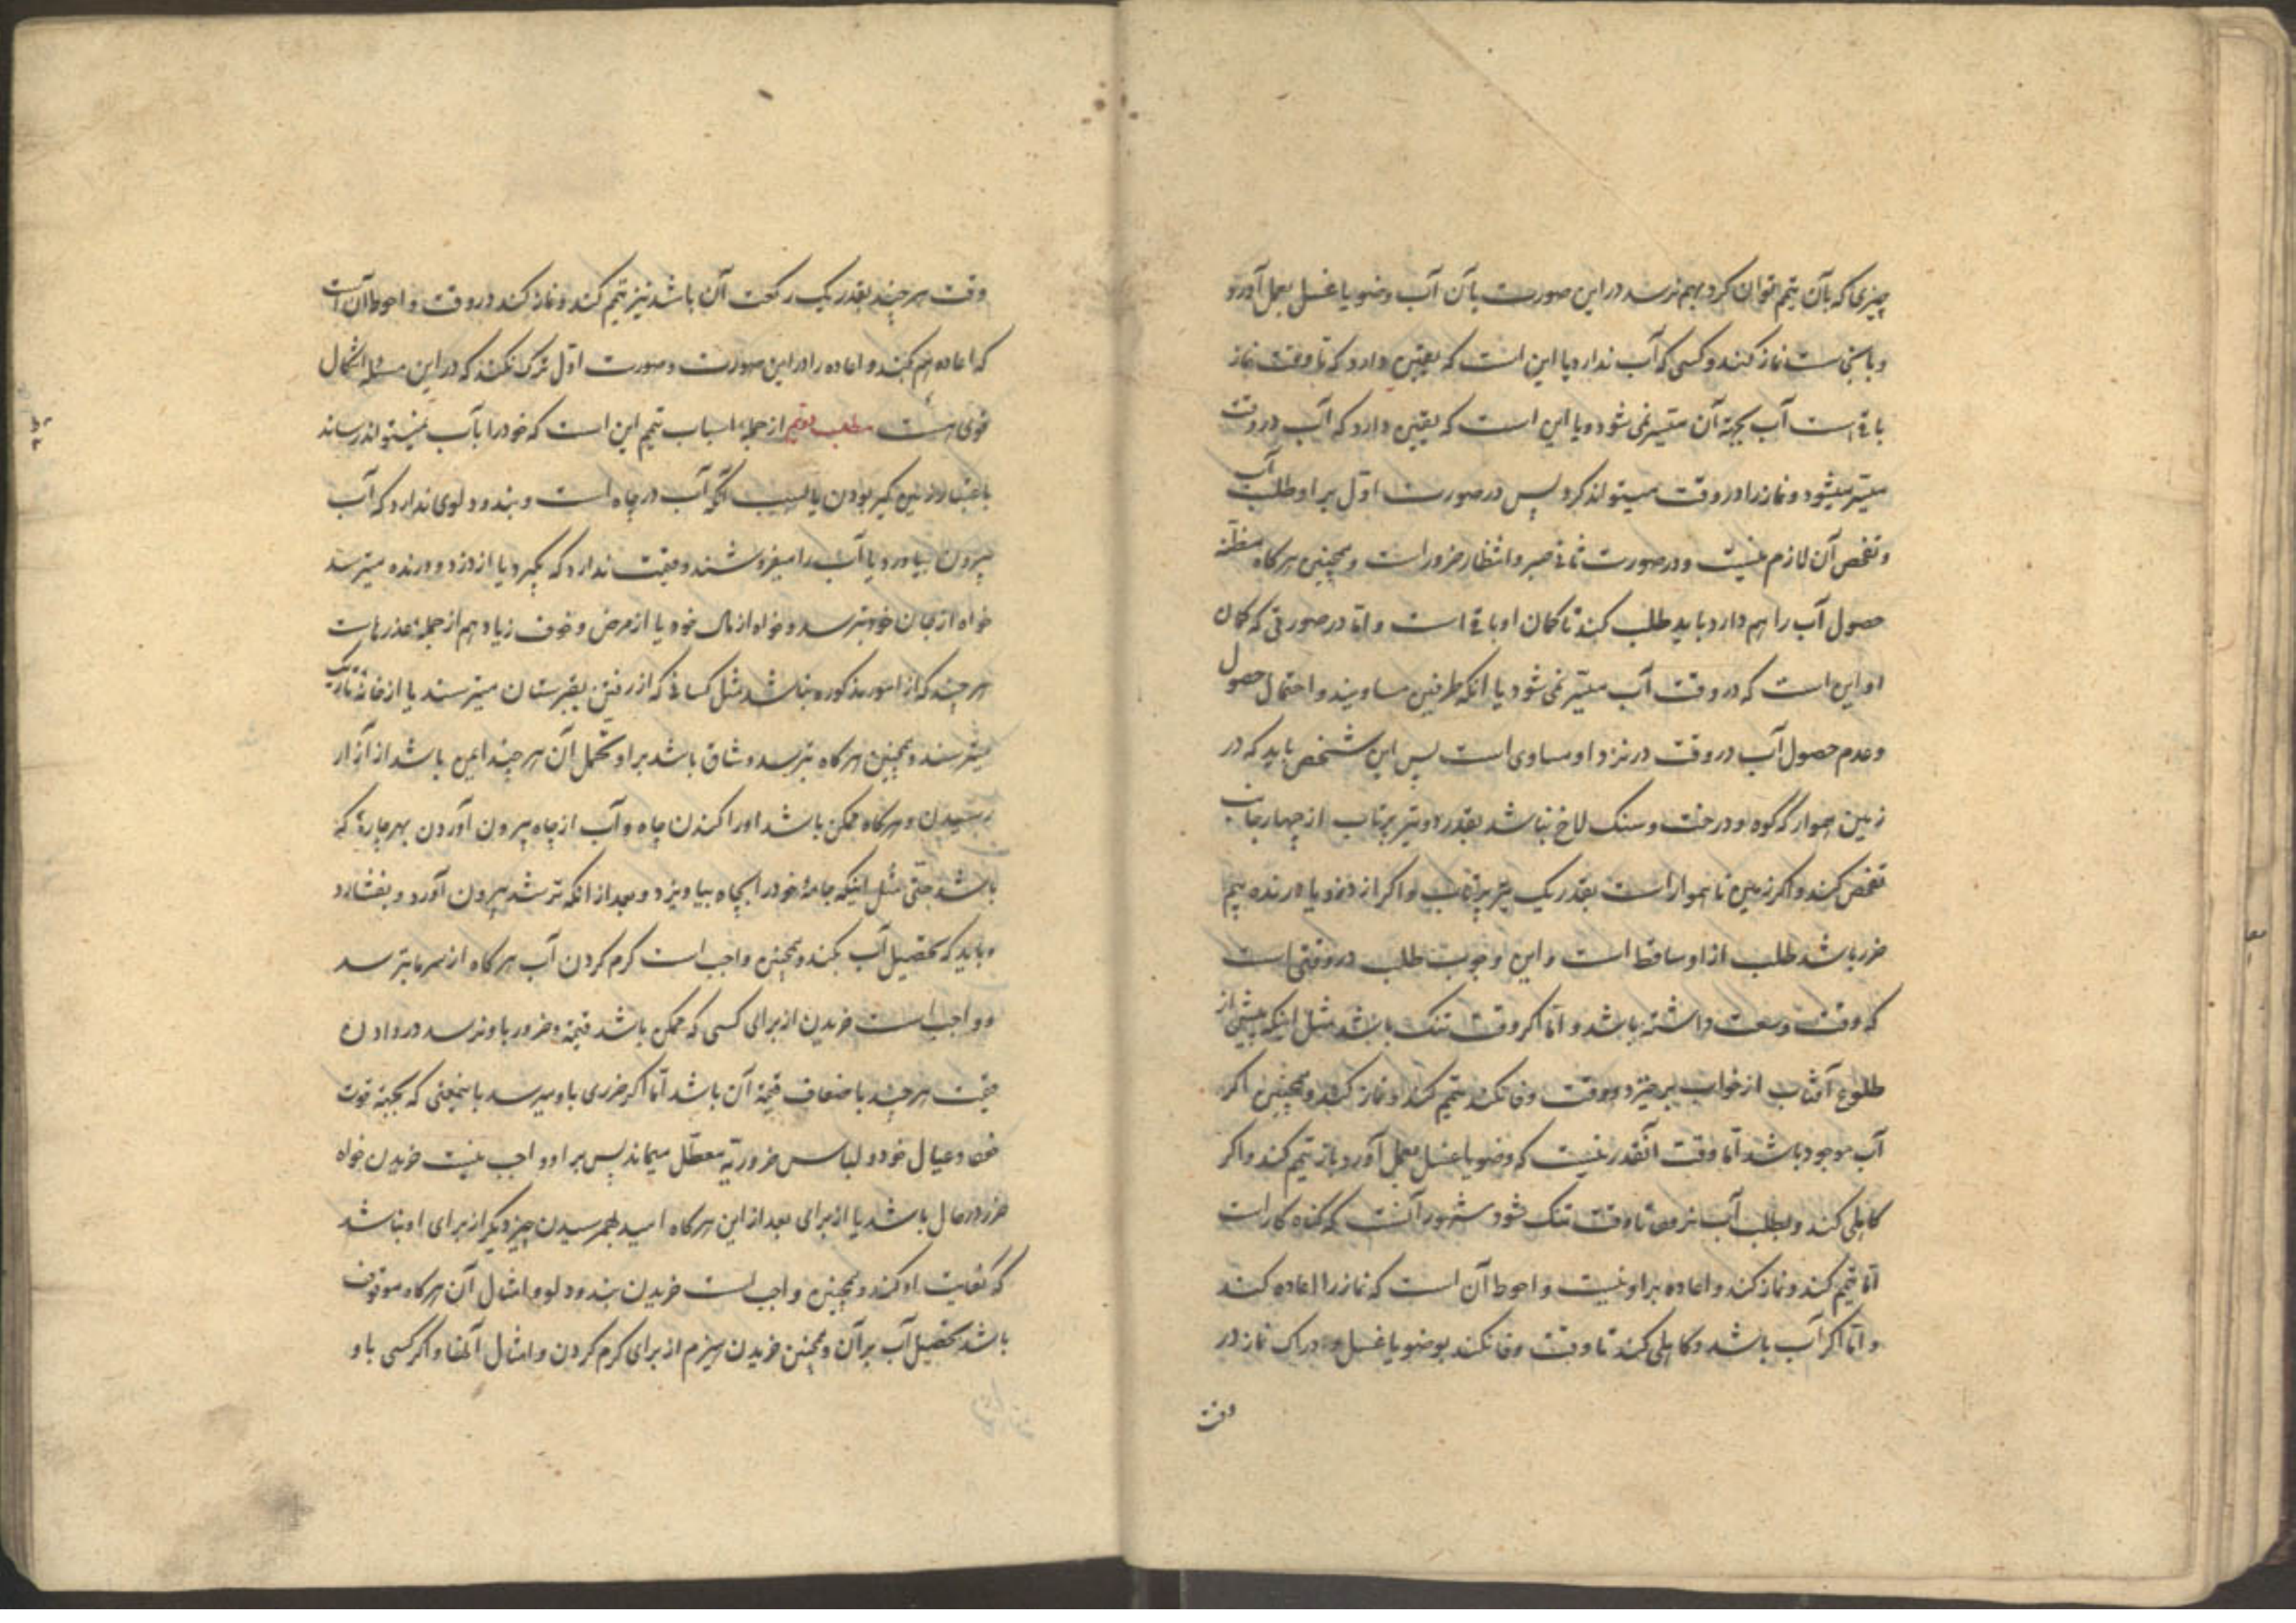 چیزی که بآن تیمم توان کرد بهم نرسد در این صورت بآن آب وضو یا غسل بعمل آورد و
و با نجاست نماز کند و کسی که آب ندارد یا این است که یقین دارد که تا وقت نماز
باقیست آب بجهة آن میسر نمی شود و یا این است که یقین دارد که آب در وقت
میسر میشود و نماز را در وقت میتواند کرد پس در صورت اول بر او طلب آب
و تفحص آن لازم نیست و در صورت ثانی صبر و انتظار ضرور است و همچنین هرکاه مظنه
حصول آب را هم دارد باید طلب کند تا کمان او باقی است و اما در صورتی که کمان
او این است که در وقت آب میسر نمی شود یا انکه طرفین مساویند و احتمال حصول
و عدم حصول آب در وقت در نزد او مساوی است پس این شخص باید که در
زمین هموار که کوه و درخت و سنک لاخ نباشد بقدر دو تیر پرتاب از چهار جانب
تفحص کند و اکر زمین ناهموار است بقدر یک تیر پرتاب و اکر از دزد یا درنده بیم
ضرر باشد طلب از او ساقط است و این وجوب طلب در وقتی است
که وقت وسعت داشته باشد و اما اکر وقت تنک باشد مثل اینکه پیش از
طلوع آفتاب از خواب برخیزد و وقت وفا نکند تیمم کند و نماز کند و همچنین اکر
آب موجود باشد اما وقت انقدر نیست که وضو یا غسل بعمل آورد باز تیمم کند و اکر
کاهلی کند و بطلب آب نرود تا وقت تنک شود مشهور آنست که کناه کار است
اما تیمم کند و نماز کند و اعاده بر او نیست و احوط آن است که نماز را اعاده کند
و اما اکر آب باشد و کاهلی کند تا وقت وفا نکند بوضو یا غسل و دراک نماز در
وقت
وقت هر چند بقدر یک رکعت آن باشد نیز تیمم کند و نماز کند در وقت و احوط آن است
که اعاده هم بکند و اعاده را در این صورت و صورت اول ترک نکند که در این مسئله اشکال
قوی هست مطلب دویم از جمله اسباب تیمم این است که خود را بآب نمیتواند رساند
باعتبار زمین کیر بودن یا بسبب آنکه آب در چاه است و بند و دلوی ندارد که آب
بیرون بیاورد یا آب را میفروشند و قیمت ندارد که بکیرد یا از دزد و درنده میترسد
خواه از جان خود بترسد و خواه از مال خود یا از مرض و خوف زیاد هم از جمله عذرهاست
هر چند که از امور مذکوره نباشد مثل کسانی که از رفتن بقبرستان میترسند یا از خانه تاریک
میترسند و همچنین هرکاه بترسد و شاق باشد بر او تحمل آن هر چند ایمن باشد از آزار
رسیدن و هرکاه ممکن باشد او را کندن چاه و آب از چاه بیرون آوردن بهر چارهٔ که
باشد حتی مثل اینکه جامهٔ خود را بچاه بیاویزد و بعد از انکه تر شد بیرون آورد و بفشارد
و باید که تحصیل آب بکند و همچنین واجب است کرم کردن آب هرکاه از سرما بترسد
و واجب است خریدن از برای کسی که ممکن باشد قیمة و ضرور باو نرسد در دادن
قیمت هر چند باضعاف قیمة آن باشد اما اکر ضرری باو میرسد باینمعنی که بجهة قوت
خود و عیال خود و لباس ضروریه معطل میماند پس بر او واجب نیست خریدن خواه
ضرر در حال باشد یا از برای بعد از این هرکاه امید بهم رسیدن چیز دیکر از برای او نباشد
که کفایت او کند و همچنین واجب است خریدن بند و دلو و امثال آن هرکاه موقوف
باشد تحصیل آب بر آن و همچنین خریدن هیزم از برای کرم کردن و امثال آنها و اکر کسی باو